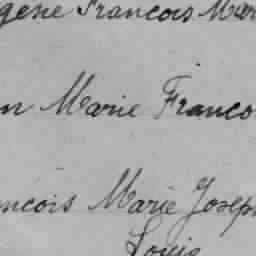 gene Francois Mar
n Marie Franco
ncois Marie Joseph
Louis